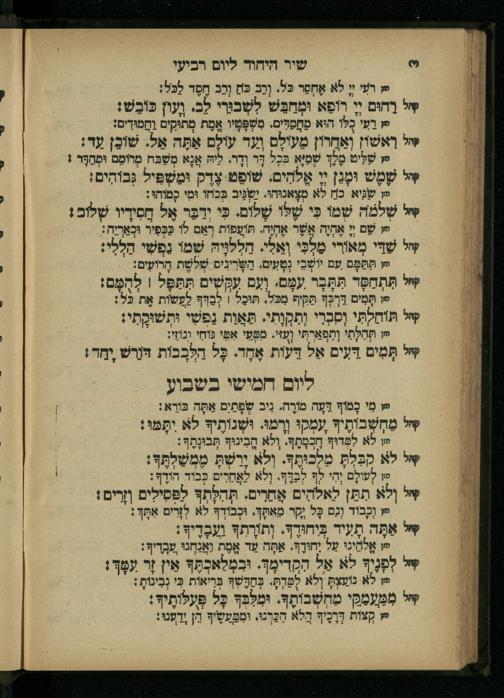 שיר היחוד ליום רביעי
חזן רֹעִי יְיָ לֹא אֶחְסַר כֹּל. וְרַב כֹּחַ וְרַב חֶסֶד לַכֹּל:
קהל רַחוּם יְיָ רוֹפֵא וּמְחַבֵּשׁ לִשְׁבוּרֵי לֵב. וְעָוֹן כּוֹבֵשׁ:
חזן רֵעִי כֻּלּוֹ הוּא מַחֲמַדִּים. מִשְׁפָּטָיו אֱמֶת מְתוּקִים וַחֲמוּדִים:
קהל רִאשׁוֹן וְאַחֲרוֹן מֵעוֹלָם וְעַד עוֹלָם אַתָּה אֵל. שׁוֹכֵן עַד:
חזן שַׁלִּיט מֶלֶךְ שְׁמַיָּא. בְּכָל דָּר וְדָר. לֵיהּ אֲנָא מְשַׁבַּח מְרוֹמֵם וּמְהַדָּר:
קהל שֶׁמֶשׁ וּמָגֵן יְיָ אֱלֹהִים. שׁוֹפֵט צֶדֶק וּמַשְׁפִּיל גְּבוֹהִים:
חזן שַׂגִּיא כֹחַ לֹא מְצָאנוּהוּ. יַשְׂגִּיב בְּכֹחוֹ וּמִי כָמוֹהוּ:
קהל שְׁלֹמֹה שְׁמוֹ כִּי שֶׁלּוֹ שָׁלוֹם. כִּי יְדַבֵּר אֶל חֲסִידָיו שָׁלוֹם:
חזן שֵׁם יְיָ אֶהְיֶה אֲשֶׁר אֶהְיֶה. תּוֹעֲפוֹת רְאֵם לוֹ כַּכְּפִיר וּכְאַרְיֵה:
קהל שַׁדַּי מְאוֹרִי מַלְכִּי וְאֵלִי. הַלְלוּיָהּ שְׁמוֹ נַפְשִׁי הַלְלִי:
חזן תִּתַּמָּם עִם יוֹשְׁבֵי נְטָעִים. הַשָּׂרִיגִים שְׁלֹשֶׁת הָרוֹעִים:
קהל תִּתְחַסָּד תִּתָּבַר עִמָּם. וְעִם עִקְּשִׁים תִּתַּפָּל | לְהֻמָּם:
חזן תָּמִים דַּרְכְּךָ תַּקִּיף מִכֹּל. תּוּכַל | לְבַדְּךָ לַעֲשׂוֹת אֶת כֹּל:
קהל תּוֹחַלְתִּי וְסִבְרִי וְתִקְוָתִי. תַּאֲוַת נַפְשִׁי וּתְשׁוּקָתִי:
חזן תְּהִלָּתִי וְתִפְאַרְתִּי וְעֻזִּי. מִמְּעֵי אִמִּי גּוֹחִי וְגוֹזִי:
קהל תְּמִים דֵּעִים אֵל דֵּעוֹת אֶחָד. כָּל הַלְּבָבוֹת דּוֹרֵשׁ יָחַד:
ליום חמישי בשבוע
חזן מִי כָמוֹךָ דֵּעָה מוֹרֶה. נִיב שְׂפָתַיִם אַתָּה בּוֹרֵא:
קהל מַחְשְׁבוֹתֶיךָ עָמְקוּ וָרָמוּ. וּשְׁנוֹתֶיךָ לֹא יִתָּמּוּ:
חזן לֹא לִמְּדוּךָ חָכְמָתֶךָ. וְלֹא הֱבִינוּךָ תְּבוּנָתֶךָ:
קהל לֹא קִבַּלְתָּ מַלְכוּתֶךָ. וְלֹא יָרַשְׁתָּ מֶמְשַׁלְתֶּךָ:
חזן לְעוֹלָם יְהִי לְךָ לְבַדֶּךָ. וְלֹא לַאֲחֵרִים כְּבוֹד הוֹדֶךָ:
קהל וְלֹא תִתֵּן לֵאלֹהִים אֲחֵרִים. תְּהִלָּתְךָ לַפְּסִילִים וְזָרִים:
חזן וְכָבוֹד וְגַם כָּל יְקָר מֵאִתָּךְ. וּכְבוֹדְךָ לֹא לְזָרִים אִתָּךְ:
קהל אַתָּה תָעִיד בְּיִחוּדֶךָ. וְתוֹרָתְךָ וַעֲבָדֶיךָ:
חזן אֱלֹהֵינוּ עַל יִחוּדֶךָ. אַתָּה עֵד אֱמֶת וַאֲנַחְנוּ עֲבָדֶיךָ:
קהל לְפָנֶיךָ לֹא אֵל הִקְדִּימֶךָ. וּבִמְלַאכְתְּךָ אֵין זָר עִמָּךְ:
חזן לֹא נוֹעַצְתָּ וְלֹא לֻמַּדְתָּ. בְּחַדֶּשְׁךָ בְּרִיאוֹת כִּי נְבוּנוֹתָ:
קהל מִמַּעֲמַקֵּי מַחְשְׁבוֹתֶיךָ. וּמִלִּבְּךָ כָּל פְּעֻלּוֹתֶיךָ:
חזן קְצוֹת דְּרָכֶיךָ הֲלֹא הִכַּרְנוּ. וּמִמַּעֲשֶׂיךָ הֵן יָדָעְנוּ: